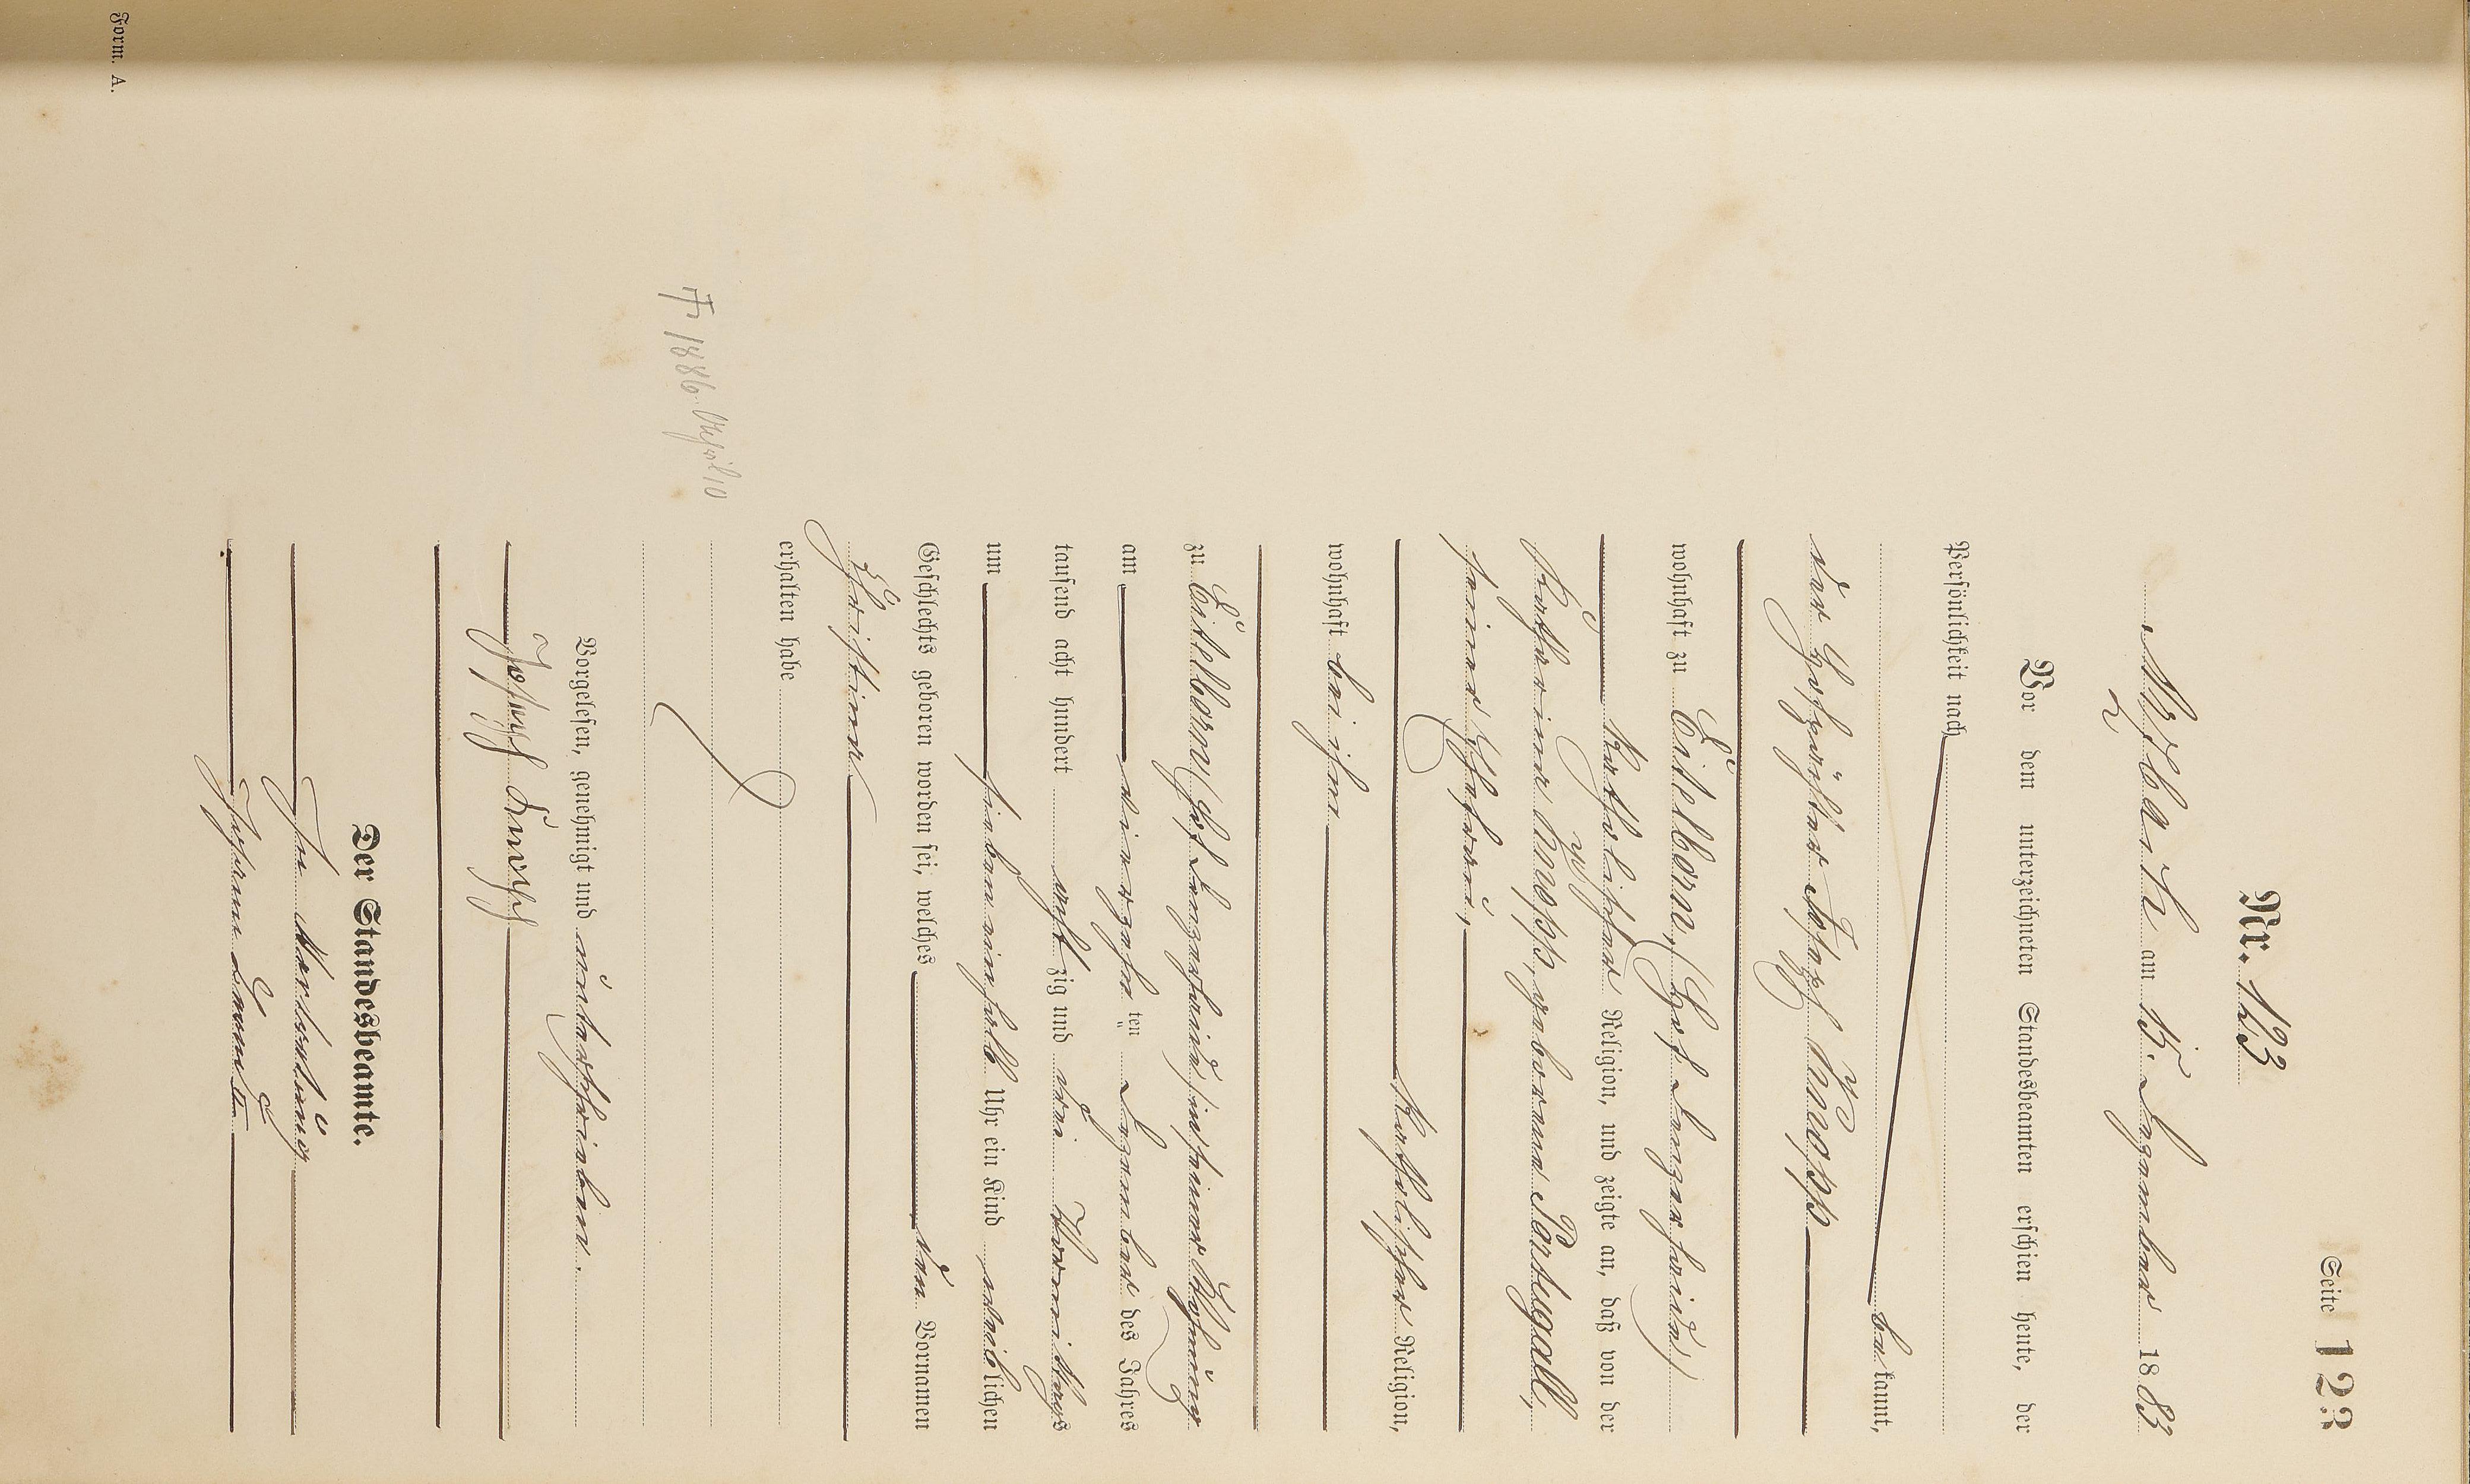 Seite 123
Nr. 123
am 15. Dezember 1883
Vor dem unterzeichneten Standesbeamten erschien heute, der
Persönlichkeit nach
be kannt,
der Hofpächter Josef Knopp
wohnhaft zu Eitelborn, (Hof Denzerheid)
katholischer Religion, und zeigte an, daß von der
Katharina Knopp, geborene Portugall,
seiner Ehefrau,
katholischer Religion,
wohnhaft bei ihm
zu Eitelborn, (Hof Denzerheid) in seiner Wohnung
am vierzehn ten Dezember des Jahres
tausend acht hundert acht zig und drei Vormittags
um sieben einhalb Uhr ein Kind weib lichen
Geschlechts geboren worden sei, welches den Vornamen
Christina
erhalten habe
† 1886 April 10
Vorgelesen, genehmigt und unterschrieben.
Joseph Knopp
Der Standesbeamte.
In Vertretung
Form. A.